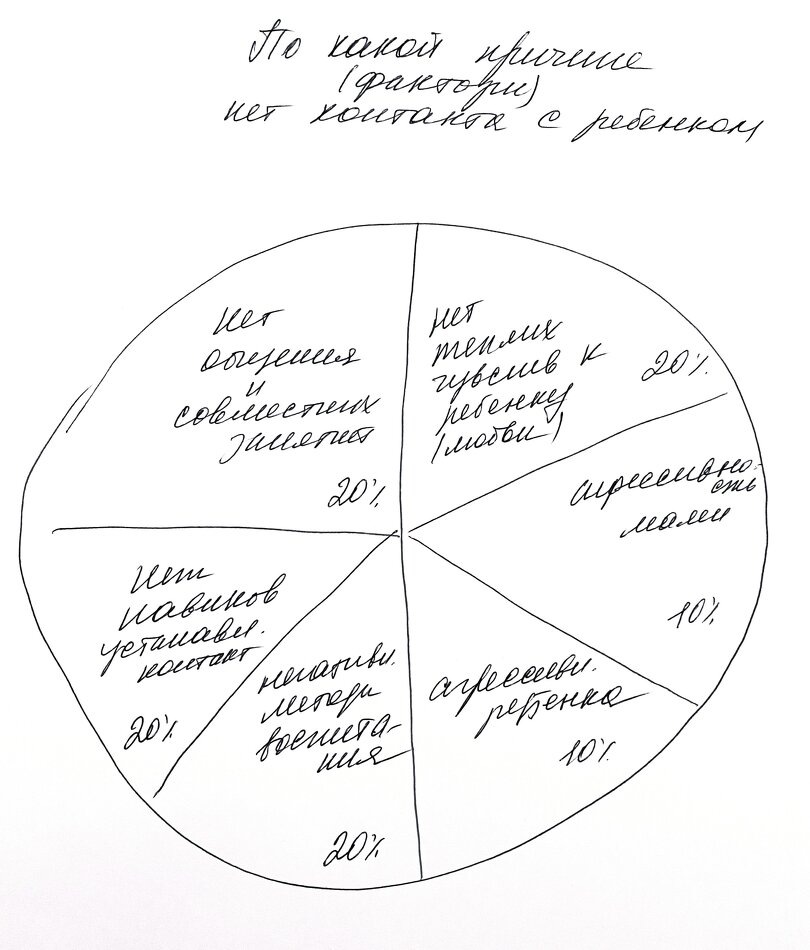 По какой причине
(фактори)
нет контакта с ребенком
Нет
общения
и
совместных
занятий
20%
Нет
теплих
чувств к
ребенку
(любви)
20%
агрессивно-
сть
мами
10%
агрессивн.
ребенка
10%
негативн.
методи
воспита-
ния
20%
Нет
навиков
установл.
контакт
20%